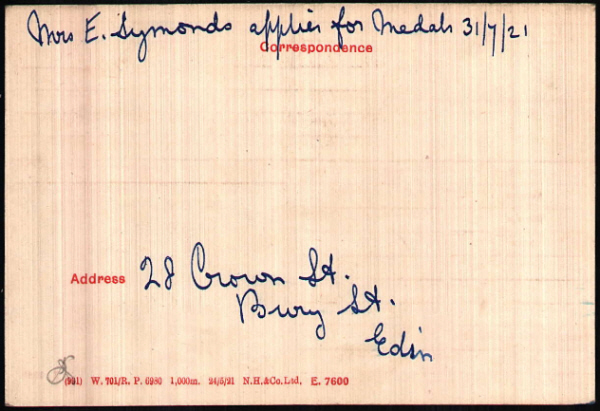 Mrs E. Symonds applies for Medals 31/7/21
Correspondence
Address 28 Crown St.
Bury St.
Edin
(991) W. 701/R. P. 6980 1,000m. 24/5/21 N.H.&Co.Ltd. E. 7600